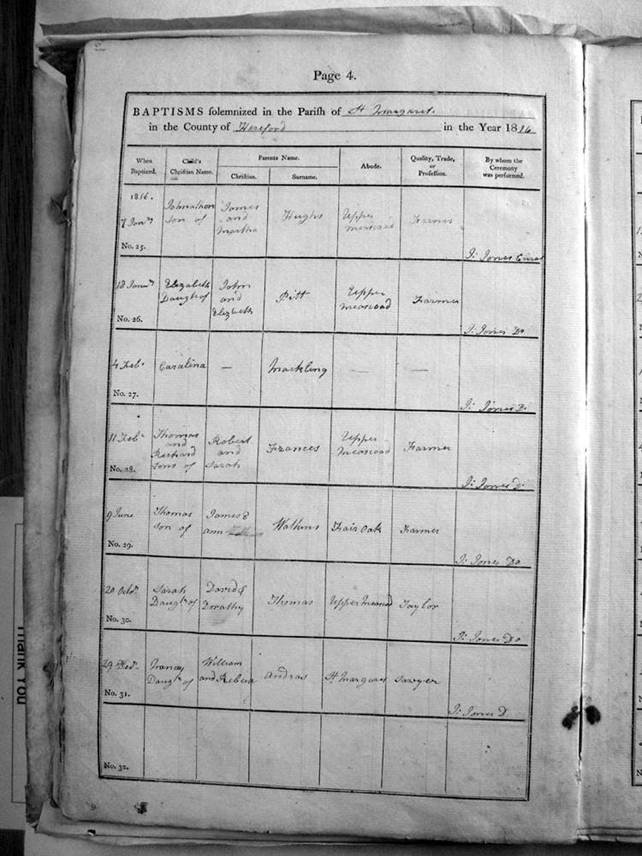 Page 4.
BAPTISMS solemnized in the Parish of St Margarets
in the County of Hereford in the Year 1816
When Baptized. Child's Christian Name. Parents Name. Abode. Quality, Trade, or Profession. By whom the Ceremony was performed.
Christian. Surname.
1816.
7 Jany Johnathan son of James and Martha Hughs Upper Farmer
No. 25. Js Jones Curate
Elizabeth Daughr of John and Elizabeth Pitt Upper Farmer
No. 26. Js Jones Do
4 Feby Carolina — Mackling — —
No. 27. Js Jones Do
11 Feby Thomas and Richard Sons of Robert and Sarah Frances Upper Farmer
No. 28. Js Jones Do
9 June Thomas son of James & Ann Watkins Fair Oak Farmer
No. 29. Js Jones Do
20 Octor Sarah Daughr of David & Dorothy Thomas Upper Taylor
No. 30. Js Jones Do
29 Daughr of William and Rebeca Andras St Margrets Sawyer
No. 31. Js Jones D
No. 32.
Thank You